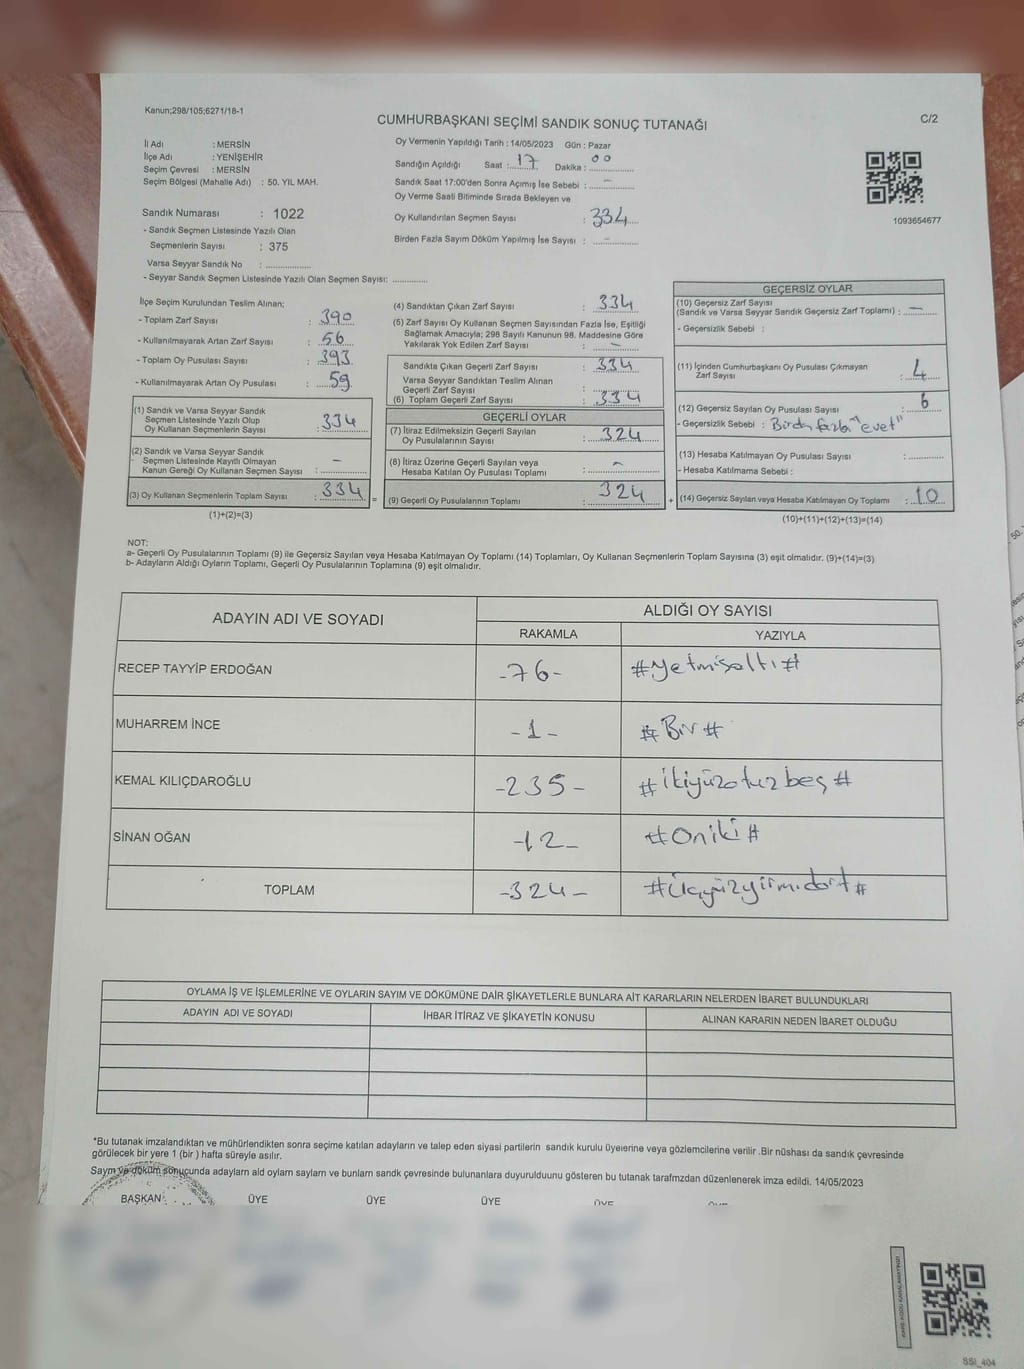 Kanun;298/105;6271/18-1
CUMHURBAŞKANI SEÇİMİ SANDIK SONUÇ TUTANAĞI
C/2
İl Adı : MERSİN
İlçe Adı : YENİŞEHİR
Seçim Çevresi : MERSİN
Seçim Bölgesi (Mahalle Adı) : 50. YIL MAH.
Sandık Numarası : 1022
- Sandık Seçmen Listesinde Yazılı Olan
Seçmenlerin Sayısı : 375
Varsa Seyyar Sandık No : ..............
- Seyyar Sandık Seçmen Listesinde Yazılı Olan Seçmen Sayısı: ..............
Oy Vermenin Yapıldığı Tarih : 14/05/2023 Gün : Pazar
Sandığın Açıldığı Saat : 17 Dakika : 00
Sandık Saat 17:00'den Sonra Açımış İse Sebebi : -
Oy Verme Saati Bitiminde Sırada Bekleyen ve
Oy Kullandırılan Seçmen Sayısı : 334
Birden Fazla Sayım Döküm Yapılmış İse Sayısı : -
1093654677
İlçe Seçim Kurulundan Teslim Alınan;
- Toplam Zarf Sayısı : 390
- Kullanılmayarak Artan Zarf Sayısı : 56
- Toplam Oy Pusulası Sayısı : 393
- Kullanılmayarak Artan Oy Pusulası : 59
(1) Sandık ve Varsa Seyyar Sandık
Seçmen Listesinde Yazılı Olup
Oy Kullanan Seçmenlerin Sayısı : 334
(2) Sandık ve Varsa Seyyar Sandık
Seçmen Listesinde Kayıtlı Olmayan
Kanun Gereği Oy Kullanan Seçmen Sayısı : -
(3) Oy Kullanan Seçmenlerin Toplam Sayısı : 334 =
(1)+(2)=(3)
(4) Sandıktan Çıkan Zarf Sayısı : 334
(5) Zarf Sayısı Oy Kullanan Seçmen Sayısından Fazla İse, Eşitliği
Sağlamak Amacıyla; 298 Sayılı Kanunun 98. Maddesine Göre
Yakılarak Yok Edilen Zarf Sayısı : -
Sandıkta Çıkan Geçerli Zarf Sayısı : 334
Varsa Seyyar Sandıktan Teslim Alınan
Geçerli Zarf Sayısı : ..............
(6) Toplam Geçerli Zarf Sayısı : 334
GEÇERLİ OYLAR
(7) İtiraz Edilmeksizin Geçerli Sayılan
Oy Pusulalarının Sayısı : 324
(8) İtiraz Üzerine Geçerli Sayılan veya
Hesaba Katılan Oy Pusulası Toplamı : -
(9) Geçerli Oy Pusulalarının Toplamı : 324 +
GEÇERSİZ OYLAR
(10) Geçersiz Zarf Sayısı
(Sandık ve Varsa Seyyar Sandık Geçersiz Zarf Toplamı) : -
- Geçersizlik Sebebi :
(11) İçinden Cumhurbaşkanı Oy Pusulası Çıkmayan
Zarf Sayısı : 4
(12) Geçersiz Sayılan Oy Pusulası Sayısı : 6
- Geçersizlik Sebebi : Birden fazla "evet"
(13) Hesaba Katılmayan Oy Pusulası Sayısı : ..............
- Hesaba Katılmama Sebebi :
(14) Geçersiz Sayılan veya Hesaba Katılmayan Oy Toplamı : 10
(10)+(11)+(12)+(13)=(14)
NOT:
a- Geçerli Oy Pusulalarının Toplamı (9) ile Geçersiz Sayılan veya Hesaba Katılmayan Oy Toplamı (14) Toplamları, Oy Kullanan Seçmenlerin Toplam Sayısına (3) eşit olmalıdır. (9)+(14)=(3)
b- Adayların Aldığı Oyların Toplamı, Geçerli Oy Pusulalarının Toplamına (9) eşit olmalıdır.
ADAYIN ADI VE SOYADI ALDIĞI OY SAYISI
RAKAMLA YAZIYLA
RECEP TAYYİP ERDOĞAN -76- #Yetmişaltı#
MUHARREM İNCE -1- #Bir#
KEMAL KILIÇDAROĞLU -235- #ikiyüzotuzbeş#
SİNAN OĞAN -12- #Oniki#
TOPLAM -324- #Üçyüzyirmidört#
OYLAMA İŞ VE İŞLEMLERİNE VE OYLARIN SAYIM VE DÖKÜMÜNE DAİR ŞİKAYETLERLE BUNLARA AİT KARARLARIN NELERDEN İBARET BULUNDUKLARI
ADAYIN ADI VE SOYADI İHBAR İTİRAZ VE ŞİKAYETİN KONUSU ALINAN KARARIN NEDEN İBARET OLDUĞU
*Bu tutanak imzalandıktan ve mühürlendikten sonra seçime katılan adayların ve talep eden siyasi partilerin sandık kurulu üyelerine veya gözlemcilerine verilir .Bir nüshası da sandık çevresinde
görülecek bir yere 1 (bir ) hafta süreyle asılır.
Sayım ve döküm sonucunda adayların ald oyların sayların ve bunların sandk çevresinde bulunanlara duyurulduunu gösteren bu tutanak tarafmzdan düzenlenerek imza edildi. 14/05/2023
BAŞKAN ÜYE ÜYE ÜYE ÜYE
SSI_404